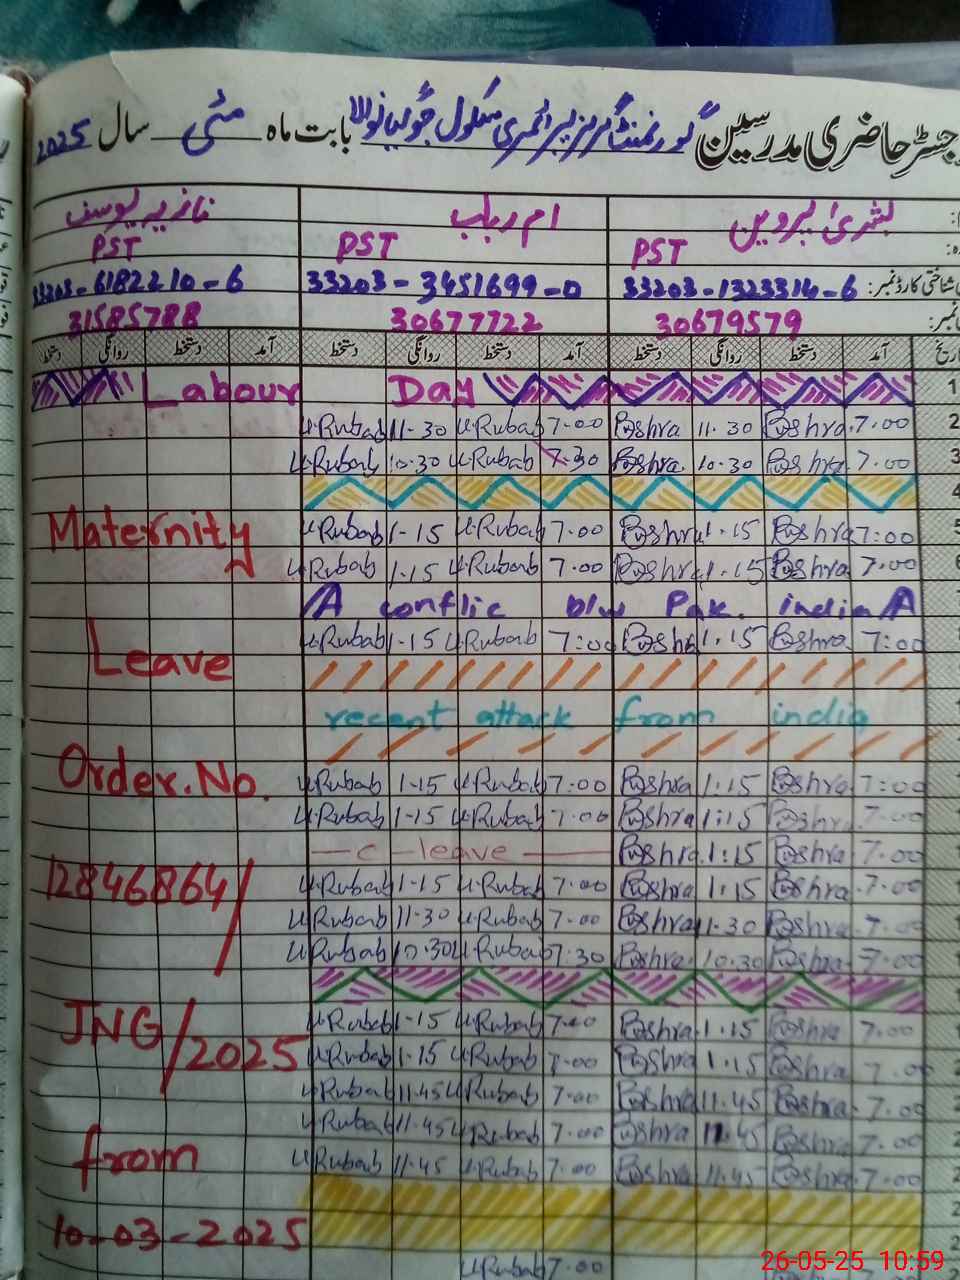 رجسٹر حاضری مدرسین گورنمنٹ گرلز پرائمری سکول بابت ماہ مئی سال 2025
بشریٰ پروین ام رباب نازیہ یوسف
PST PST PST
شناختی کارڈ نمبر: 33203-1323314-6 33203-3451699-0 33203-6182210-6
30679579 30677722 31585788
تاریخ آمد دستخط روانگی دستخط آمد دستخط روانگی دستخط آمد دستخط روانگی دستخط
Labour Day 1
U.Rubab 11.30 U.Rubab 7.00 Bushra 11.30 Bushra 7.00 2
U.Rubab 10.30 U.Rubab 7.30 Bushra 10.30 Bushra 7.00 3
4
Maternity U.Rubab 1-15 U.Rubab 7.00 Bushra 1.15 Bushra 7:00 5
U.Rubab 1.15 U.Rubab 7.00 Bushra 1.15 Bushra 7.00 6
A conflic b/w Pak. india A
Leave U.Rubab 1-15 U.Rubab 7:00 Bushra 1.15 Bushra 7:00
recent attack from india
Order.No. U.Rubab 1-15 U.Rubab 7:00 Bushra 1.15 Bushra 7:00
U.Rubab 1-15 U.Rubab 7.00 Bushra 1:15 Bushra 7.00
c-leave Bushra 1:15 Bushra 7.00
12846864/ U.Rubab 1-15 U.Rubab 7.00 Bushra 1.15 Bushra 7.00
U.Rubab 11-30 U.Rubab 7.00 Bushra 11.30 Bushra 7.00
U.Rubab 10.30 U.Rubab 7.30 Bushra 10.30 Bushra 7.00
JNG/2025 U.Rubab 1-15 U.Rubab 7.00 Bushra 1.15 Bushra 7.00
U.Rubab 1-15 U.Rubab 7.00 Bushra 1.15 Bushra 7.00
U.Rubab 11.45 U.Rubab 7.00 Bushra 11.45 Bushra 7.00
from U.Rubab 11.45 U.Rubab 7.00 Bushra 11.45 Bushra 7.00
U.Rubab 11.45 U.Rubab 7.00 Bushra 11.45 Bushra 7.00
10-03-2025
U.Rubab 7.00
26-05-25 10:59